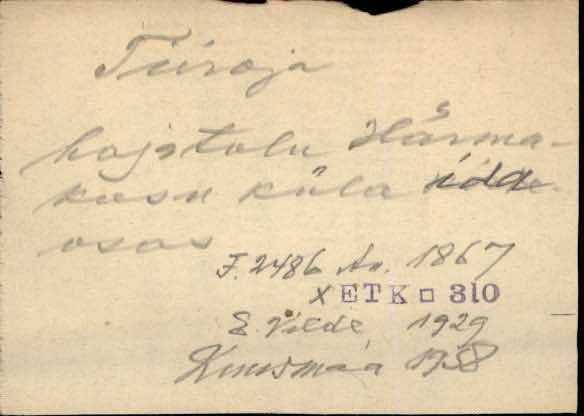 Tiiroja
hajatalu Härma-
kosu küla ida-
osas
F. 2486 An. 1867
x ETK □ 310
E. Vilde 1929
Kuusmaa 1958